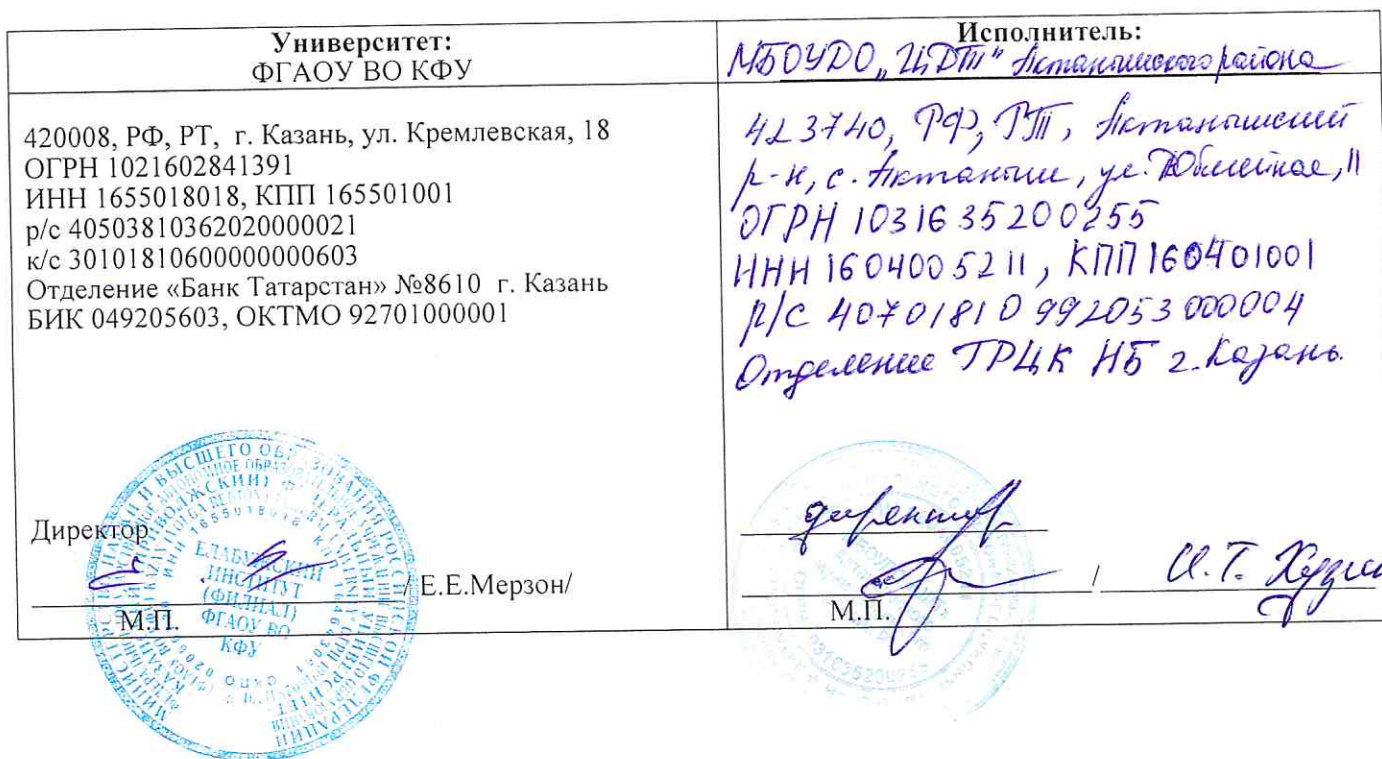 Университет:
ФГАОУ ВО КФУ
420008, РФ, РТ, г. Казань, ул. Кремлевская, 18
ОГРН 1021602841391
ИНН 1655018018, КПП 165501001
р/с 40503810362020000021
к/с 30101810600000000603
Отделение «Банк Татарстан» №8610 г. Казань
БИК 049205603, ОКТМО 92701000001
Директор
/ Е.Е.Мерзон/
М.П.
ЕЛАБУЖСКИЙ
ИНСТИТУТ
(ФИЛИАЛ)
ФГАОУ ВО
КФУ
Исполнитель:
МБОУДО „ЦДТ" Актанышского района
423740, РФ, РТ, Актанышский
р-н, с. Актаныш, ул. Юбилейная, 11
ОГРН 1031635200255
ИНН 1604005211, КПП 160401001
р/с 40701810992053000004
Отделение ГРЦК НБ г. Казань.
директор
/ И.Т.
М.П.